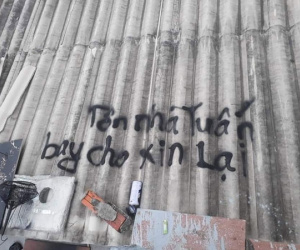 Tôn nhà Tuấn
bay cho xin Lại